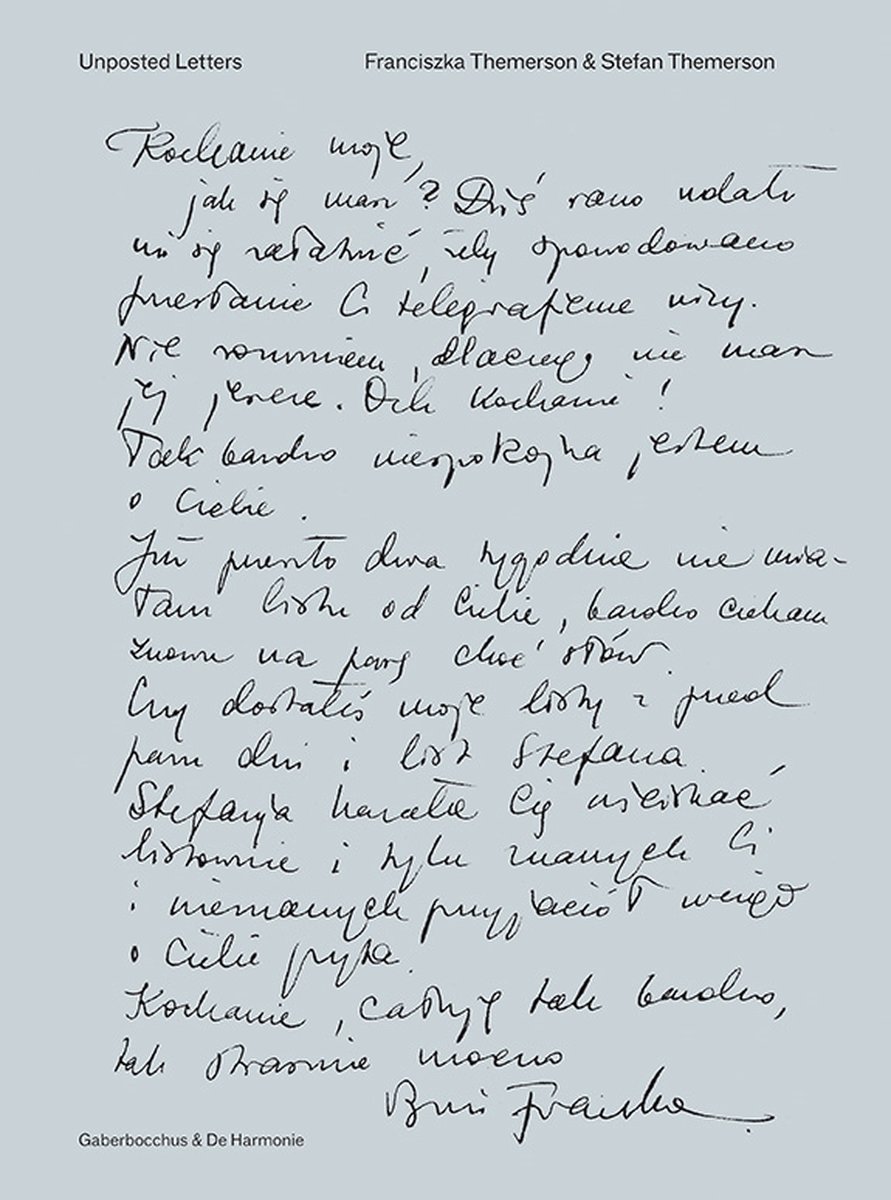 Unposted Letters
Franciszka Themerson & Stefan Themerson
Kochanie moje,
jak się masz? Dziś rano udało
mi się załatwić, żeby spowodowano
przesłanie Ci telegraficzne wizy.
Nie rozumiem, dlaczego nie masz
jej jeszcze. Och Kochanie!
Tak bardzo niespokojna jestem
o Ciebie.
Już przeszło dwa tygodnie nie mia-
łam listu od Ciebie, bardzo czekam
znowu na parę choć słów.
Czy dostałeś moje listy z przed
paru dni i list Stefana.
Stefanja kazała Cię uściskać
listownie i tylu znanych Ci
i nieznanych przyjaciół wciąż
o Ciebie pyta.
Kochanie, całuję tak bardzo,
tak strasznie mocno
Franka
Gaberbocchus & De Harmonie